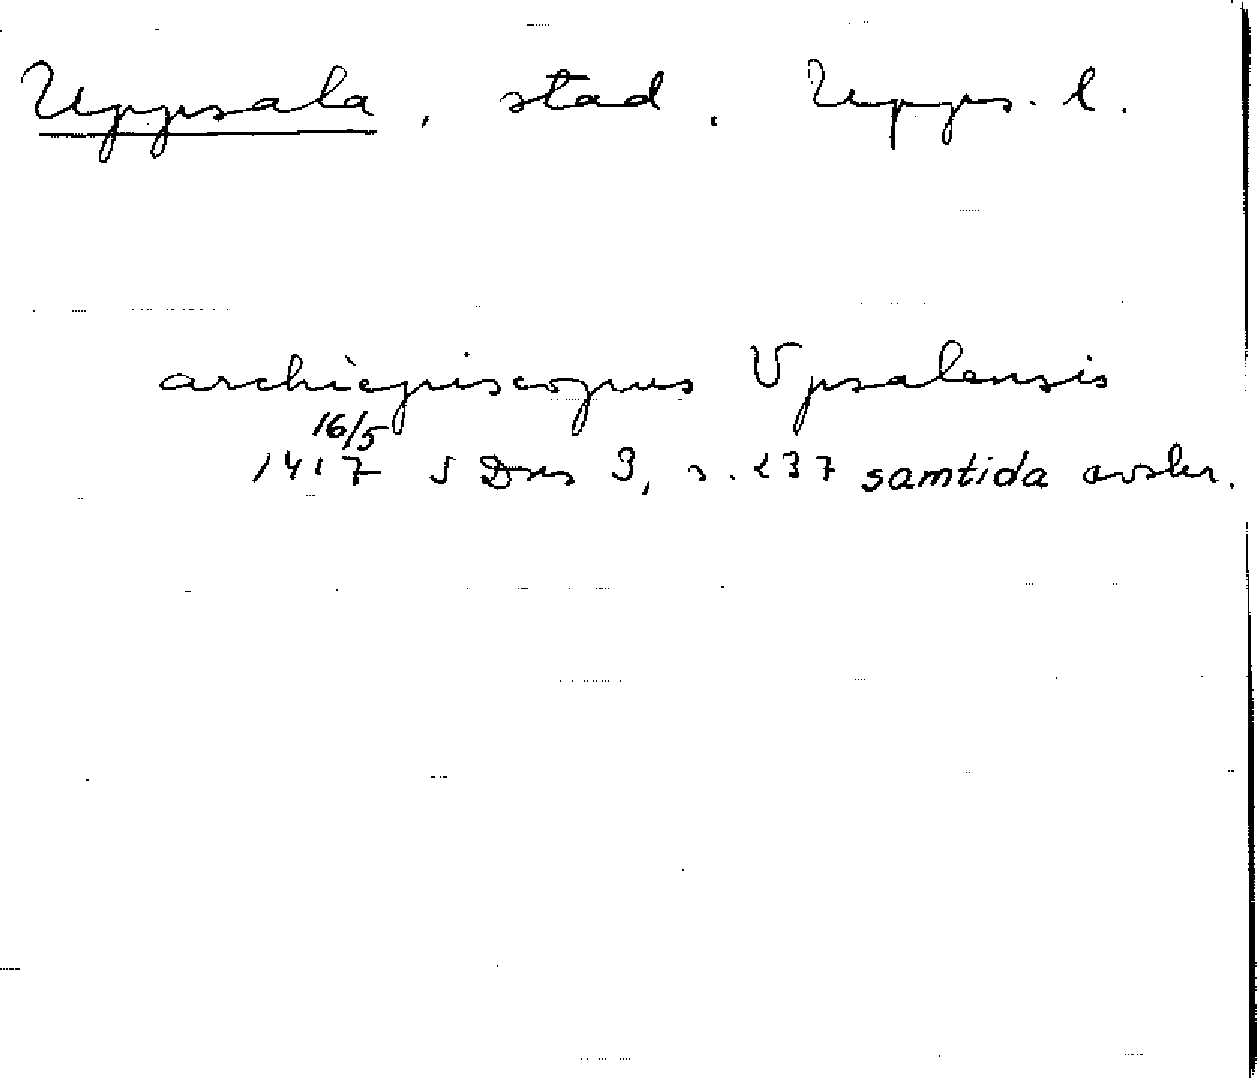 Uppsala, stad. Upps. l.
archiepiscopus Vpsalensis
16/5
1417 SDns 3, s. 237 samtida avskr.